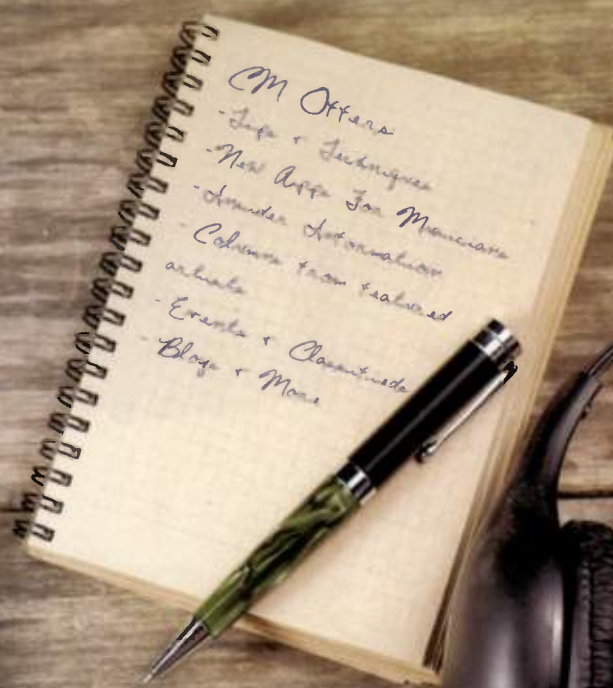 CM Offers
- Tips & Techniques
- New Apps For Musicians
- Insider Information
- Columns from featured
artists
- Events & Classifieds
- Blogs & More